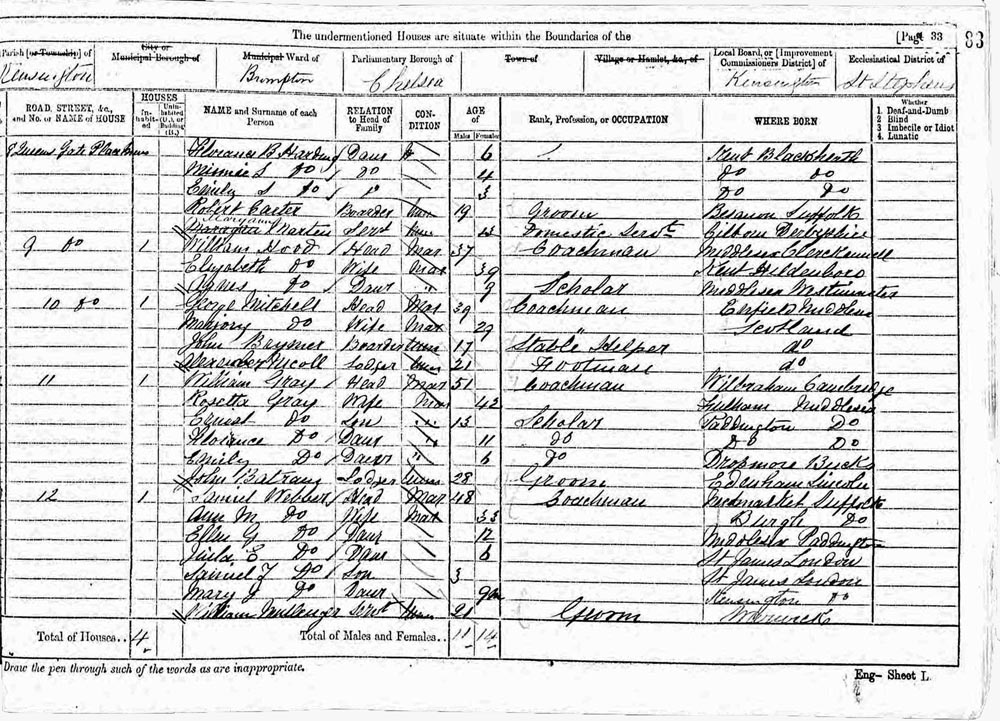 The undermentioned Houses are situate within the Boundaries of the [Page 33 83
Parish [or Township] of City or Municipal Borough of Municipal Ward of Parliamentary Borough of Town of Village or Hamlet, &c., of Local Board, or [Improvement Commissioners District] of Ecclesiastical District of
Kensington Brompton Chelsea Kensington St Stephens
ROAD, STREET, &c., and No. or NAME of HOUSE HOUSES In-habit-ed Unin-habited (U.), or Building (B.) NAME and Surname of each Person RELATION to Head of Family CON-DITION AGE of Males Females Rank, Profession, or OCCUPATION WHERE BORN Whether 1. Deaf-and-Dumb 2. Blind 3. Imbecile or Idiot 4. Lunatic
Queens Gate Place Mews Florance B. Harding Daur 6 Kent Blackheath
Minnie L Do Do 4 Do Do
Emily S Do Do 3 Do Do
Robert Carter Boarder Unm 19 Groom Suffolk
Maryann Martin Servt Unm Domestic Servt Derbyshire
9 Do 1 William Hood Head Mar 37 Coachman Middlesex Clerkenwell
Elizabeth Do Wife Mar 39 Kent Hildenboro
Agnes Do Daur " 9 Scholar Middlesex Westminster
10 Do 1 George Mitchell Head Mar 39 Coachman Enfield Middlesex
Marjory Do Wife Mar 29 Scotland
John Boarder Unm 17 Stable Helper do
Alexander Nicoll Lodger Unm 21 Footman do
11 1 William Gray Head Mar 51 Coachman Wilbraham Cambridge
Rosetta Gray Wife Mar 42 Fulham Middlesex
Ernest Do Son " 13 Scholar Paddington Do
Florance Do Daur " 11 Do Do Do
Emily Do Daur " 6 Do Dropmore Bucks
John Batram Lodger Unm 28 Groom Edenham Lincoln
12 1 Samuel Webber Head Mar 48 Coachman Newmarket Suffolk
Ann M. Do Wife Mar 33 Burgh Do
Ellen G Do Daur 12 Middlesex Paddington
E Do Daur 6 St James London
Samuel J Do Son 3 St James London
Mary J Do Daur 9m Kensington Do
William Servt Unm 21 Groom
Total of Houses.. 4 Total of Males and Females.. 11 14
Draw the pen through such of the words as are inappropriate.
Eng— Sheet L.